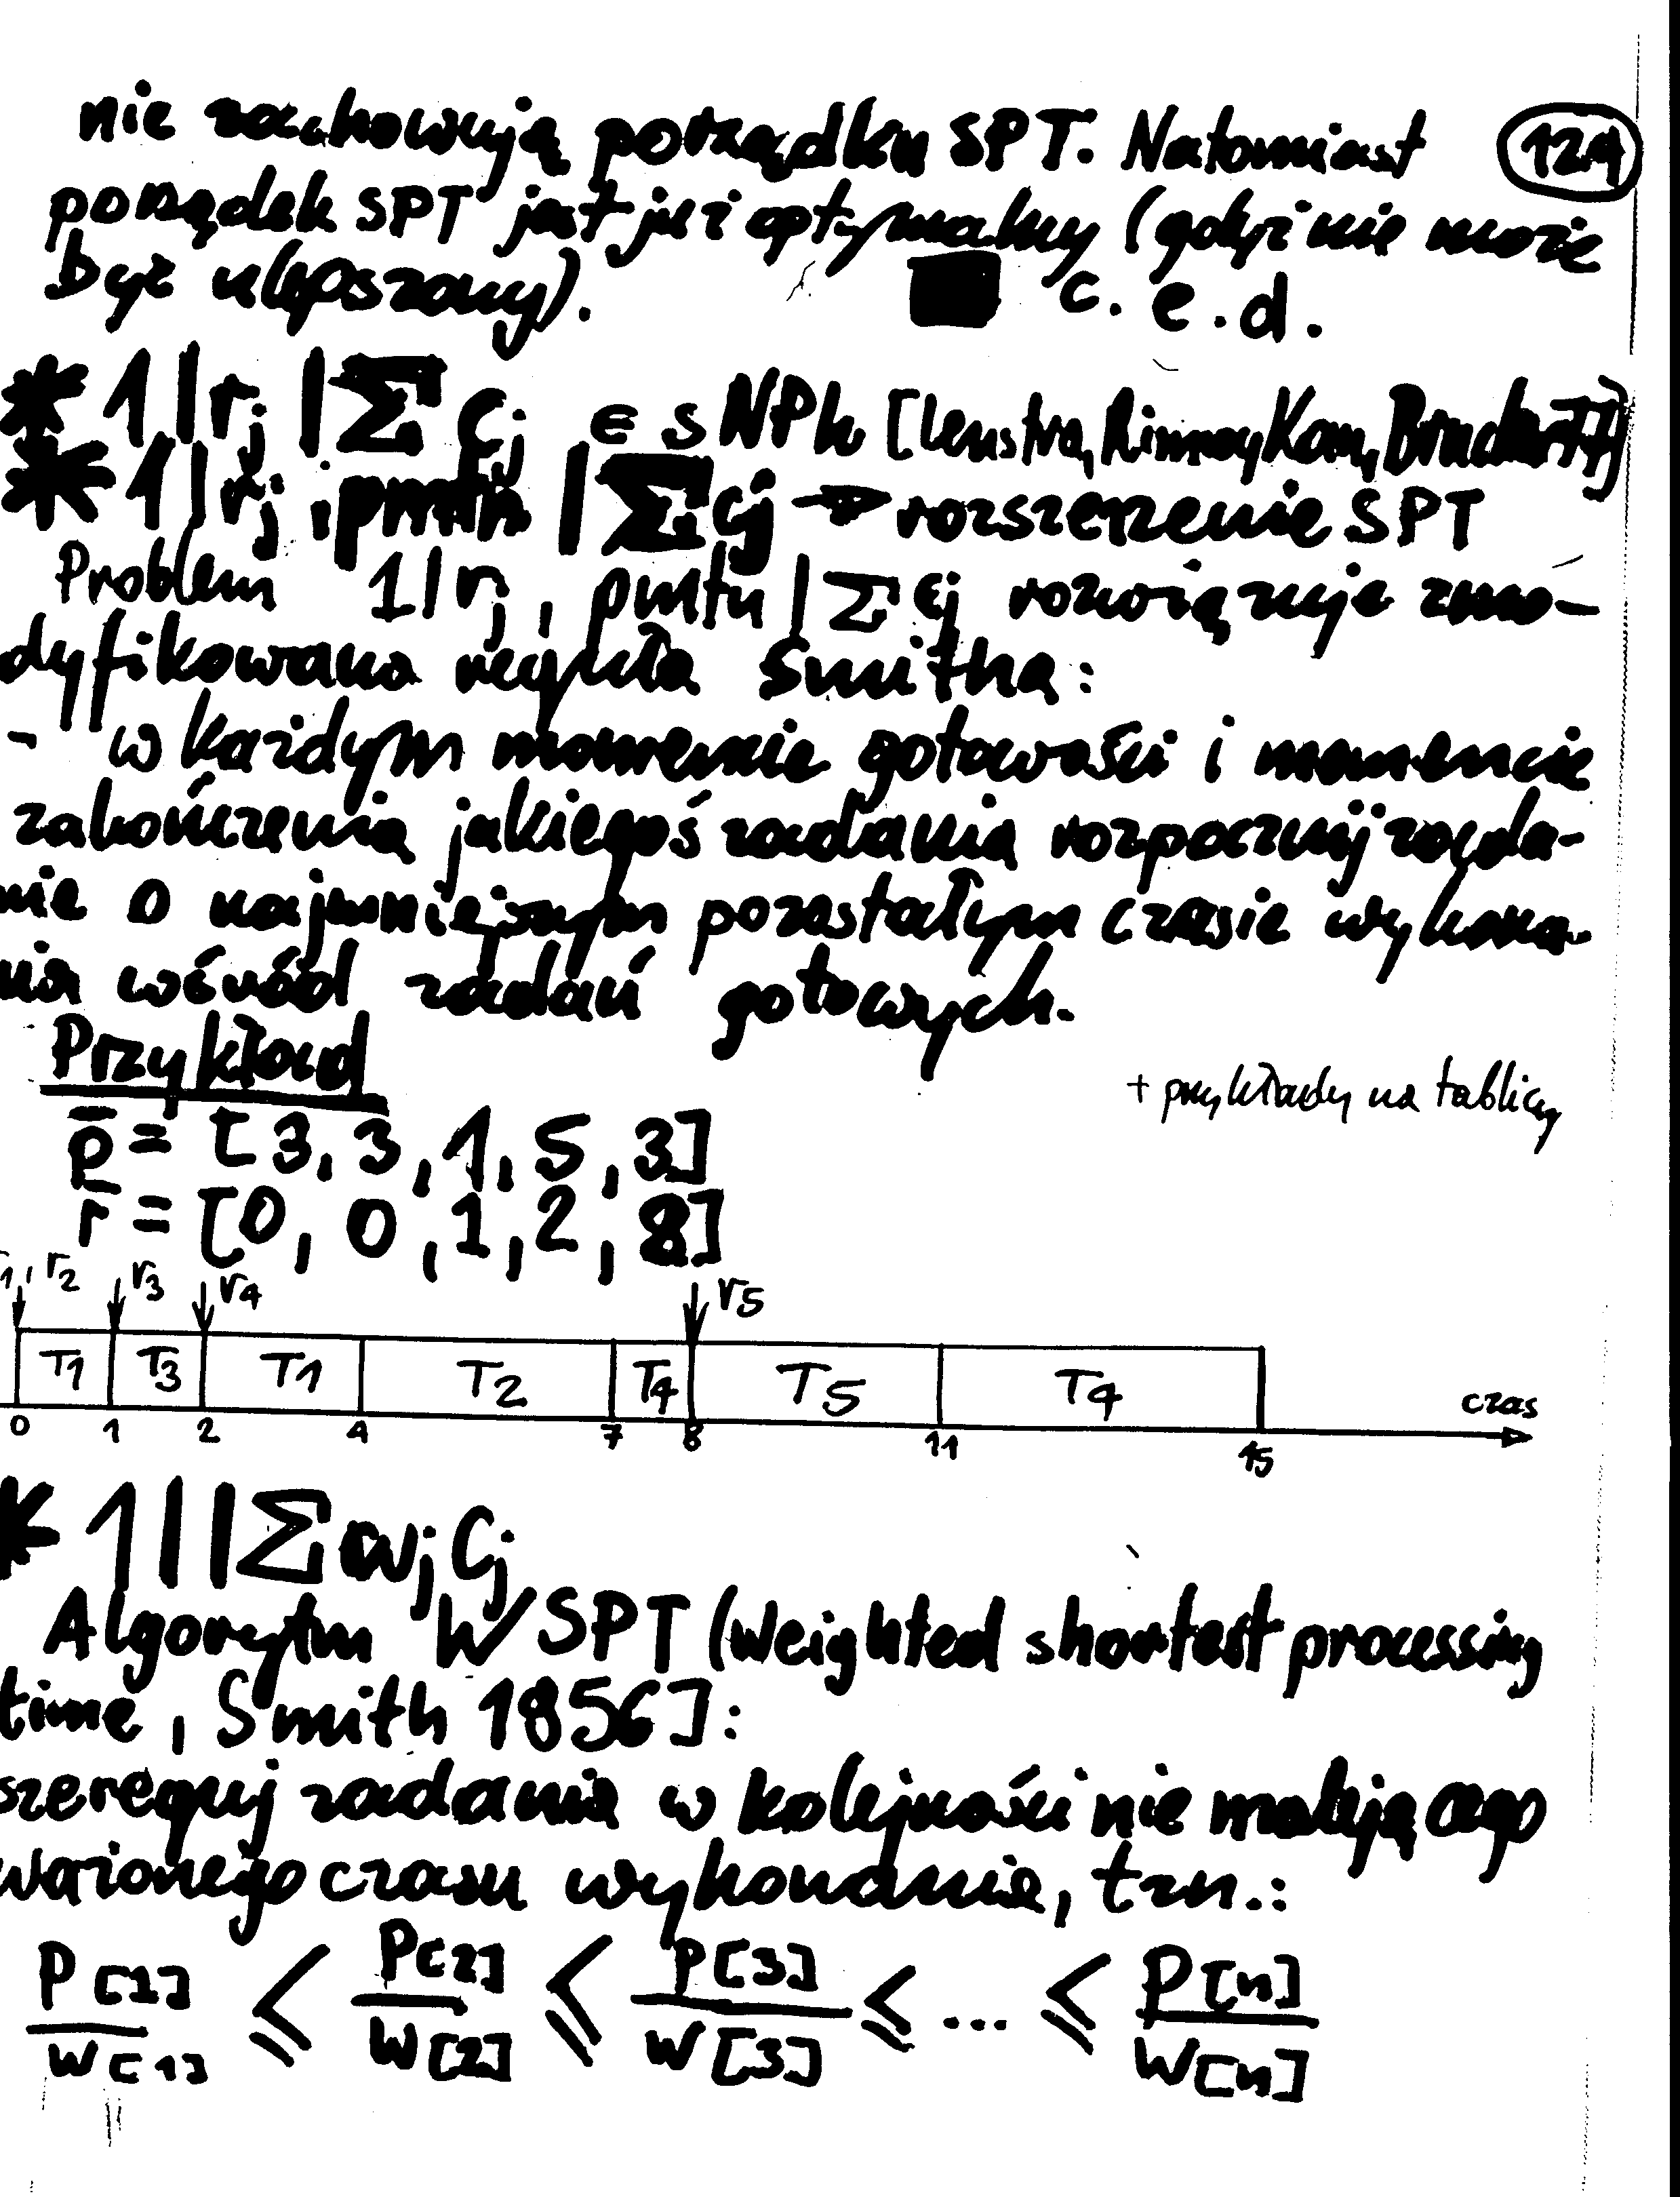 nie zachowują porządku SPT. Natomiast
124
porządek SPT jest już optymalny (gdyż nie może
być ulepszony). ■ c. e. d.
* 1|rj|Σ Cj ∈ sNPh [Lenstra, Rinnoy Kan, Brucker 77]
* 1|rj, pmtn|Σ Cj → rozszerzenie SPT
Problem 1|rj, pmtn|Σ Cj rozwiązuje zmo-
dyfikowana reguła Smitha:
- w każdym momencie gotowości i momencie
zakończenia jakiegoś zadania rozpocznij zada-
nie o najmniejszym pozostałym czasie wykona-
nia wśród zadań gotowych.
Przykład
+ przykłady na tablicy
p̄ = [3, 3, 1, 5, 3]
r̄ = [0, 0, 1, 2, 8]
r1, r2 r3 r4 r5
T1 T3 T1 T2 T4 T5 T4
czas
0 1 2 4 7 8 11 15
* 1||Σ wj Cj
Algorytm WSPT (Weighted shortest processing
time, Smith 1956]:
szereguj zadania w kolejności nie malejącego
ważonego czasu wykonania, tzn.:
p[1]/w[1] ≤ p[2]/w[2] ≤ p[3]/w[3] ≤ ... ≤ p[n]/w[n]